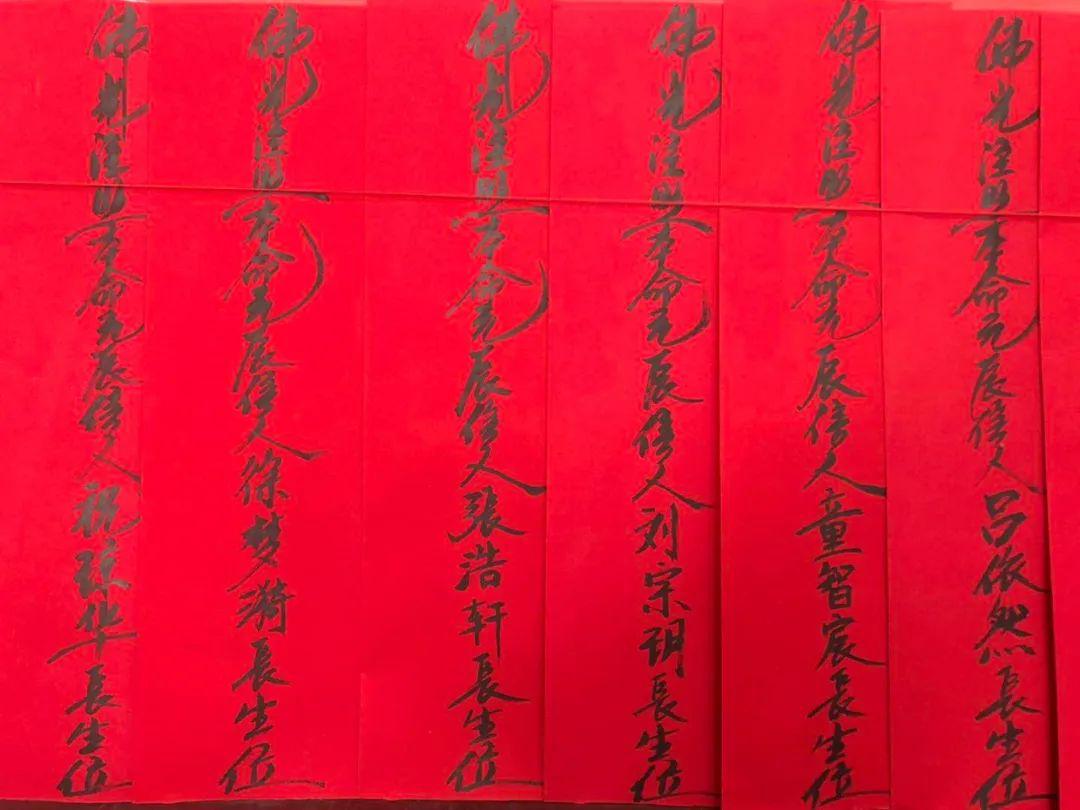 佛光注照本命元辰信人吕依然長生位
佛光注照本命元辰信人童智宸長生位
佛光注照本命元辰信人刘宗玥長生位
佛光注照本命元辰信人張浩轩長生位
佛光注照本命元辰信人徐梦漪長生位
佛光注照本命元辰信人祝琼华長生位